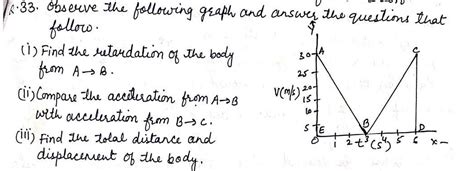 Q.33. Observe the following graph and answer the questions that
follow.
(i) Find the retardation of the body
from A → B.
(ii) Compare the acceleration from A→B
with acceleration from B→C.
(iii) Find the total distance and
displacement of the body.
y
30 A C
25
V(m/s) 20
15
10
5 B
E 1 2 3 4 5 6 D x
t (s)